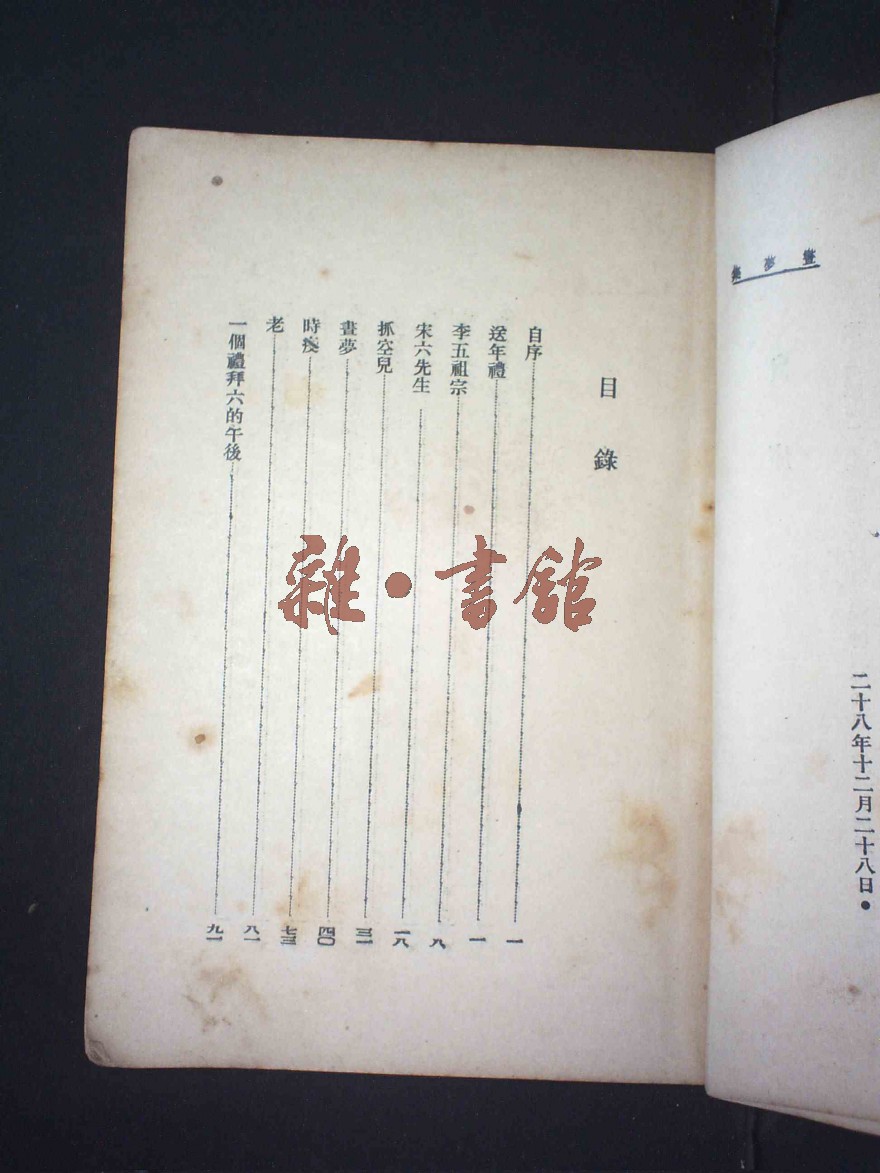 晝夢集
二十八年十二月二十八日●
目錄
自序……一
送年禮……一
李五祖宗……九
宋六先生……一八
抓空兒……三一
晝夢……四〇
時疫……七三
老……八一
一個禮拜六的午後……九一
雜·書館